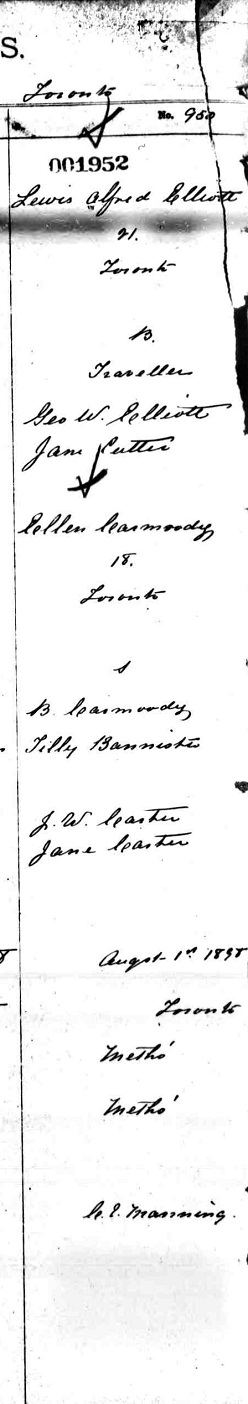 S.
Toronto
No. 950
001952
Lewis Alfred Elliott
21.
Toronto
B.
Traveller
Geo W. Elliott
Jane Cutter
Ellen Carmoody
18.
Toronto
S
B. Carmoody
Tilly Bannister
J. W. Carter
Jane Carter
Augst 1st 1898
Toronto
Metho'
Metho'
C. E. Manning.